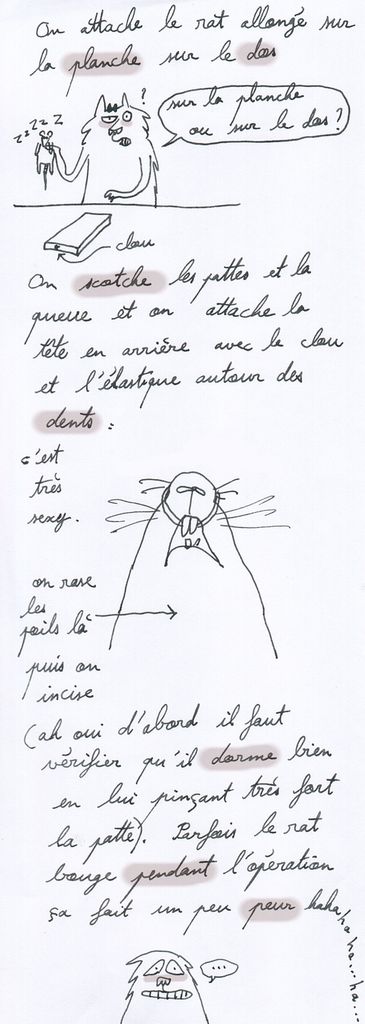 On attache le rat allongé sur
la planche sur le dos
?
zzzzz
sur la planche
ou sur le dos ?
clou
On scotche les pattes et la
queue et on attache la
tête en arrière avec le clou
et l'élastique autour des
dents :
c'est
très
sexy.
on rase
les
poils là
puis on
incise
(ah oui d'abord il faut
vérifier qu'il dorme bien
en lui pinçant très fort
la patte). Parfois le rat
bouge pendant l'opération
ça fait un peu peur haha
ha ha...ha...
...